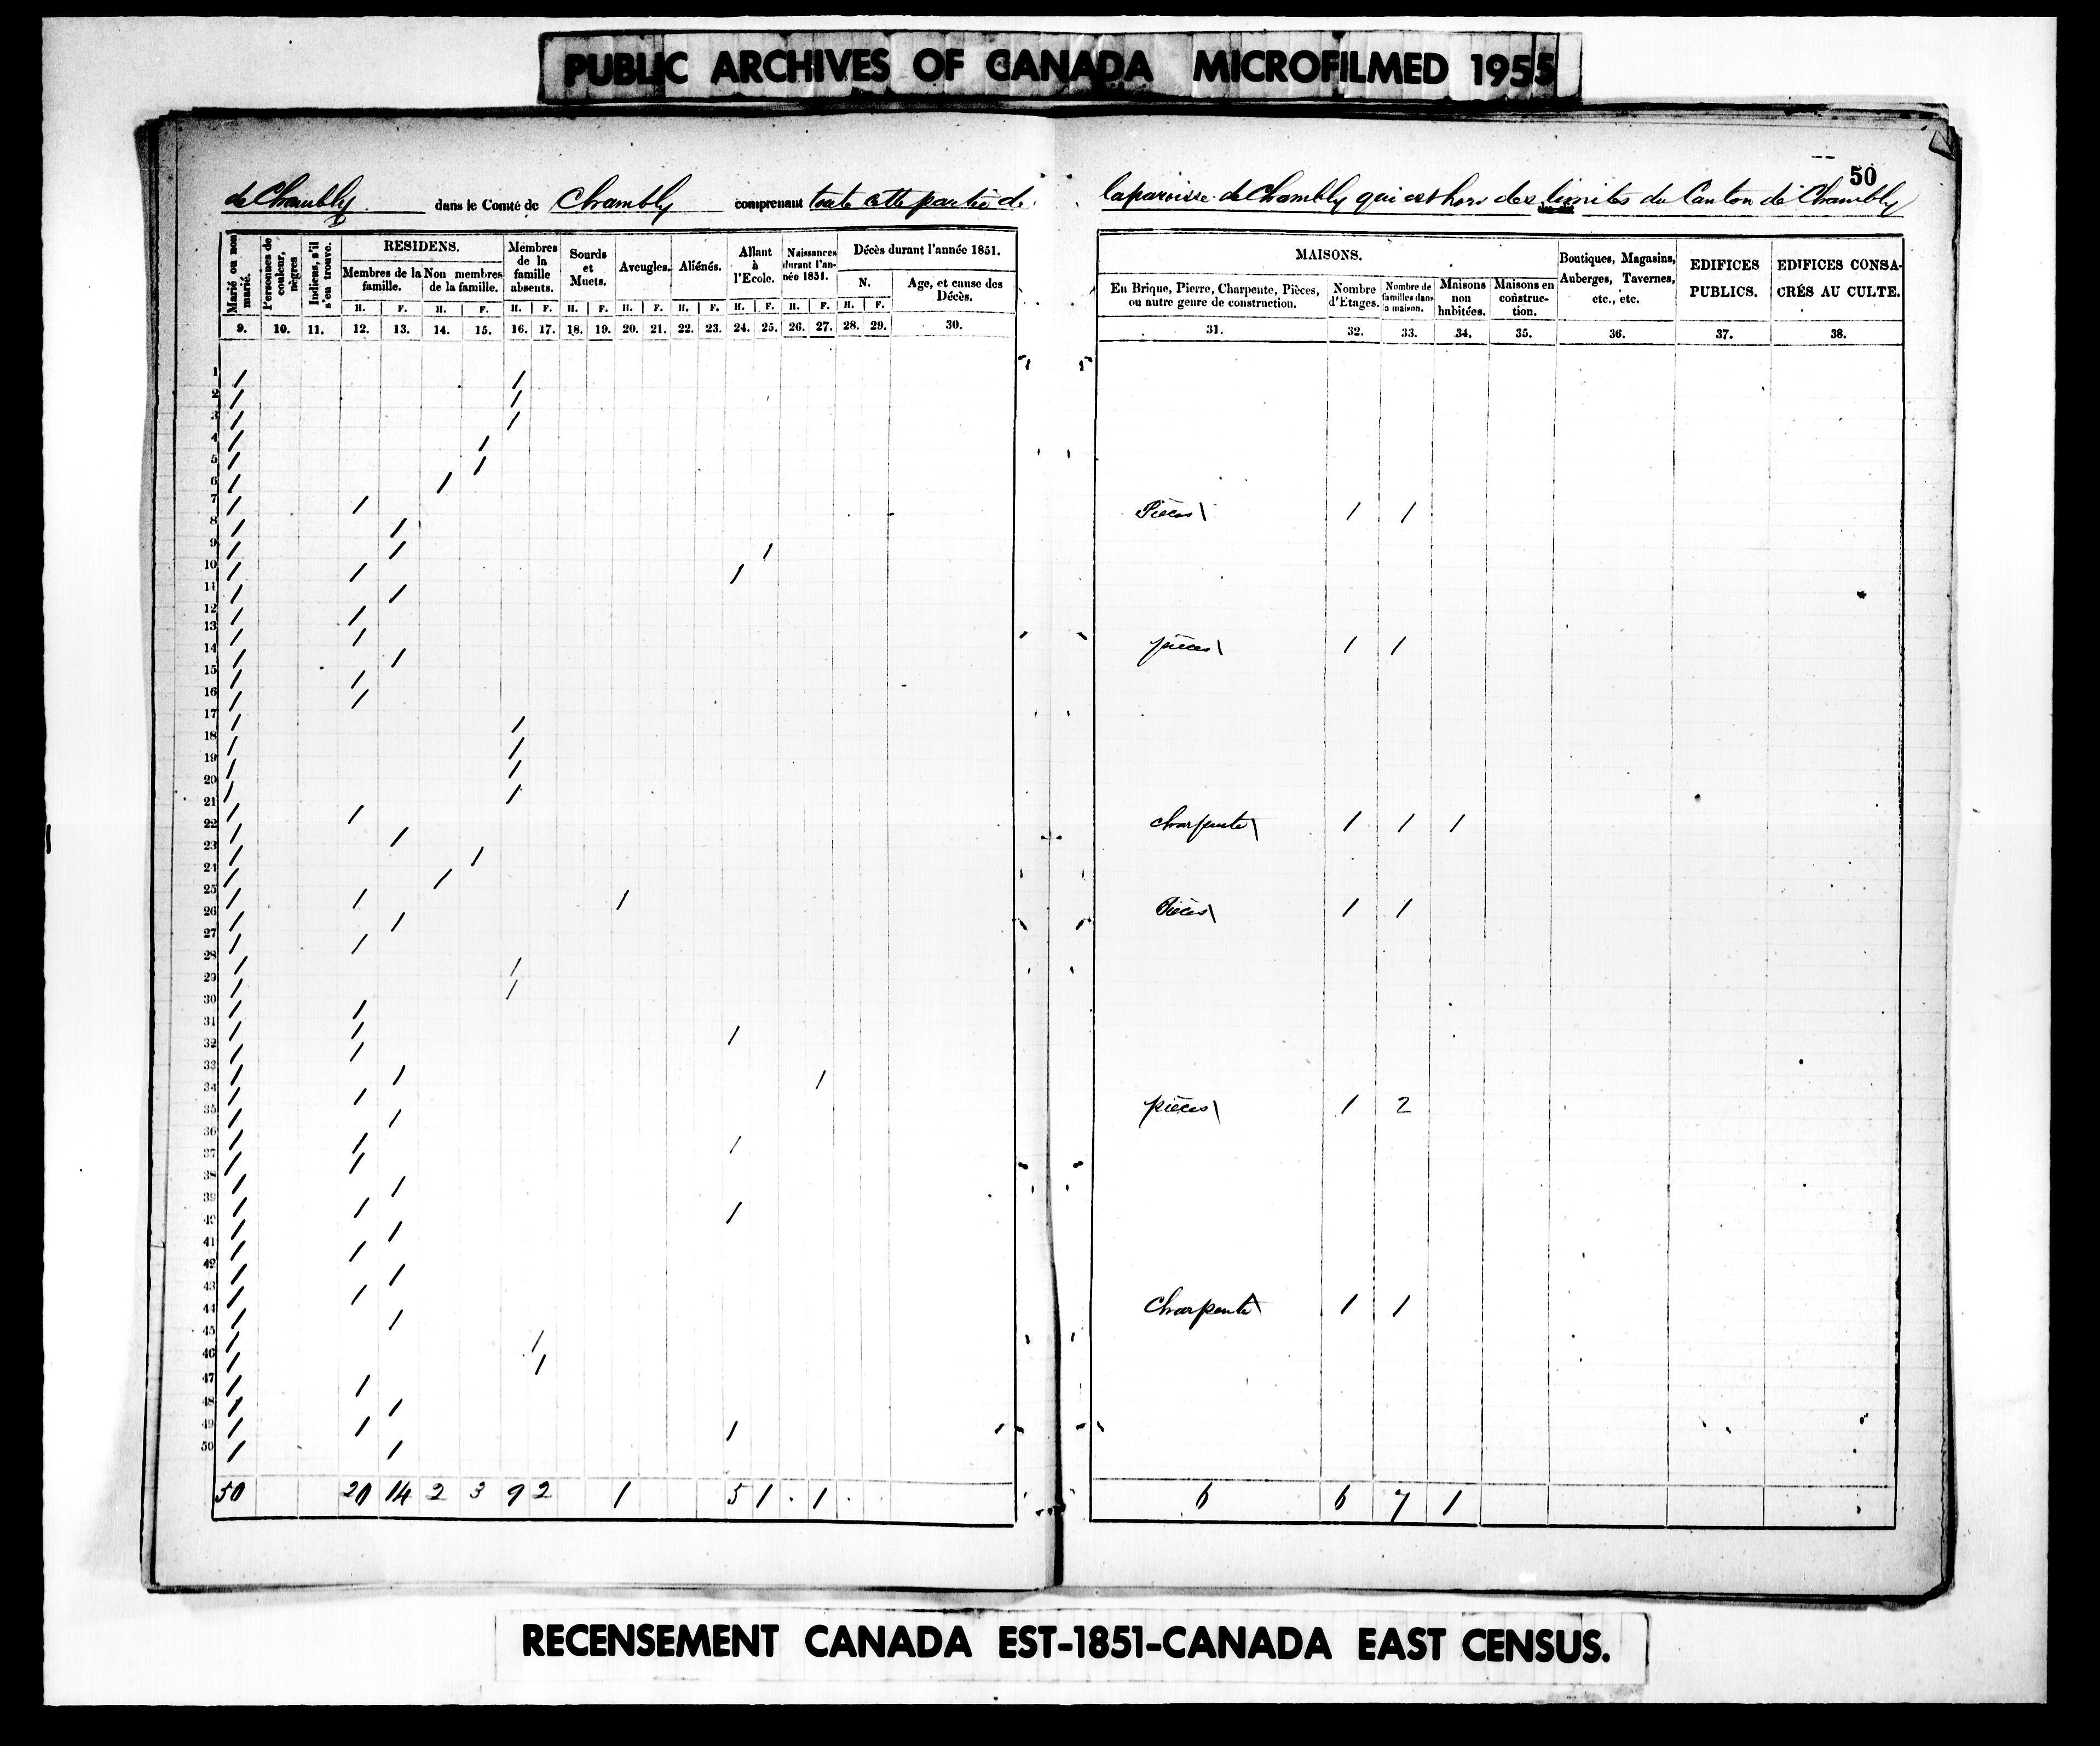 PUBLIC ARCHIVES OF CANADA MICROFILMED 1955
50
de Chambly dans le Comté de Chambly comprenant toute cette partie de la paroisse de Chambly qui est hors des limites du Canton de Chambly
Marié ou non marié.
Personnes de couleur, nègres
Indiens, s'il s'en trouve.
RESIDENS.
Membres de la famille.
Non membres de la famille.
Membres de la famille absents.
Sourds et Muets.
Aveugles.
Aliénés.
Allant à l'Ecole.
Naissances durant l'année 1851.
Décès durant l'année 1851.
N.
Age, et cause des Décès.
H. F. H. F. H. F. H. F. H. F. H. F. H. F. H. F. H. F.
9. 10. 11. 12. 13. 14. 15. 16. 17. 18. 19. 20. 21. 22. 23. 24. 25. 26. 27. 28. 29. 30.
MAISONS.
En Brique, Pierre, Charpente, Pièces, ou autre genre de construction.
Nombre d'Etages.
Nombre de familles dans la maison.
Maisons non habitées.
Maisons en construction.
Boutiques, Magasins, Auberges, Tavernes, etc., etc.
EDIFICES PUBLICS.
EDIFICES CONSACRÉS AU CULTE.
31. 32. 33. 34. 35. 36. 37. 38.
1 / /
2 / /
3 / /
4 / /
5 / /
6 / /
7 / / Pièces \ 1 1
8 / /
9 / / /
10 / / /
11 / /
12 / /
13 / / pièces \ 1 1
14 / /
15 / /
16 / /
17 / /
18 / /
19 / /
20 / /
21 / / charpente \ 1 1 1
22 / /
23 / /
24 / /
25 / / / Pièces \ 1 1
26 / /
27 / /
28 / /
29 / /
30 / /
31 / / /
32 / /
33 / / /
34 / / pièces \ 1 2
35 / /
36 / / /
37 / /
38 / /
39 / / /
40 / /
41 / /
42 / /
43 / / Charpente \ 1 1
44 / /
45 / /
46 / /
47 / /
48 / /
49 / / /
50 / /
50 20 14 2 3 9 2 1 5 1 . 1 . 6 6 7 1
RECENSEMENT CANADA EST-1851-CANADA EAST CENSUS.